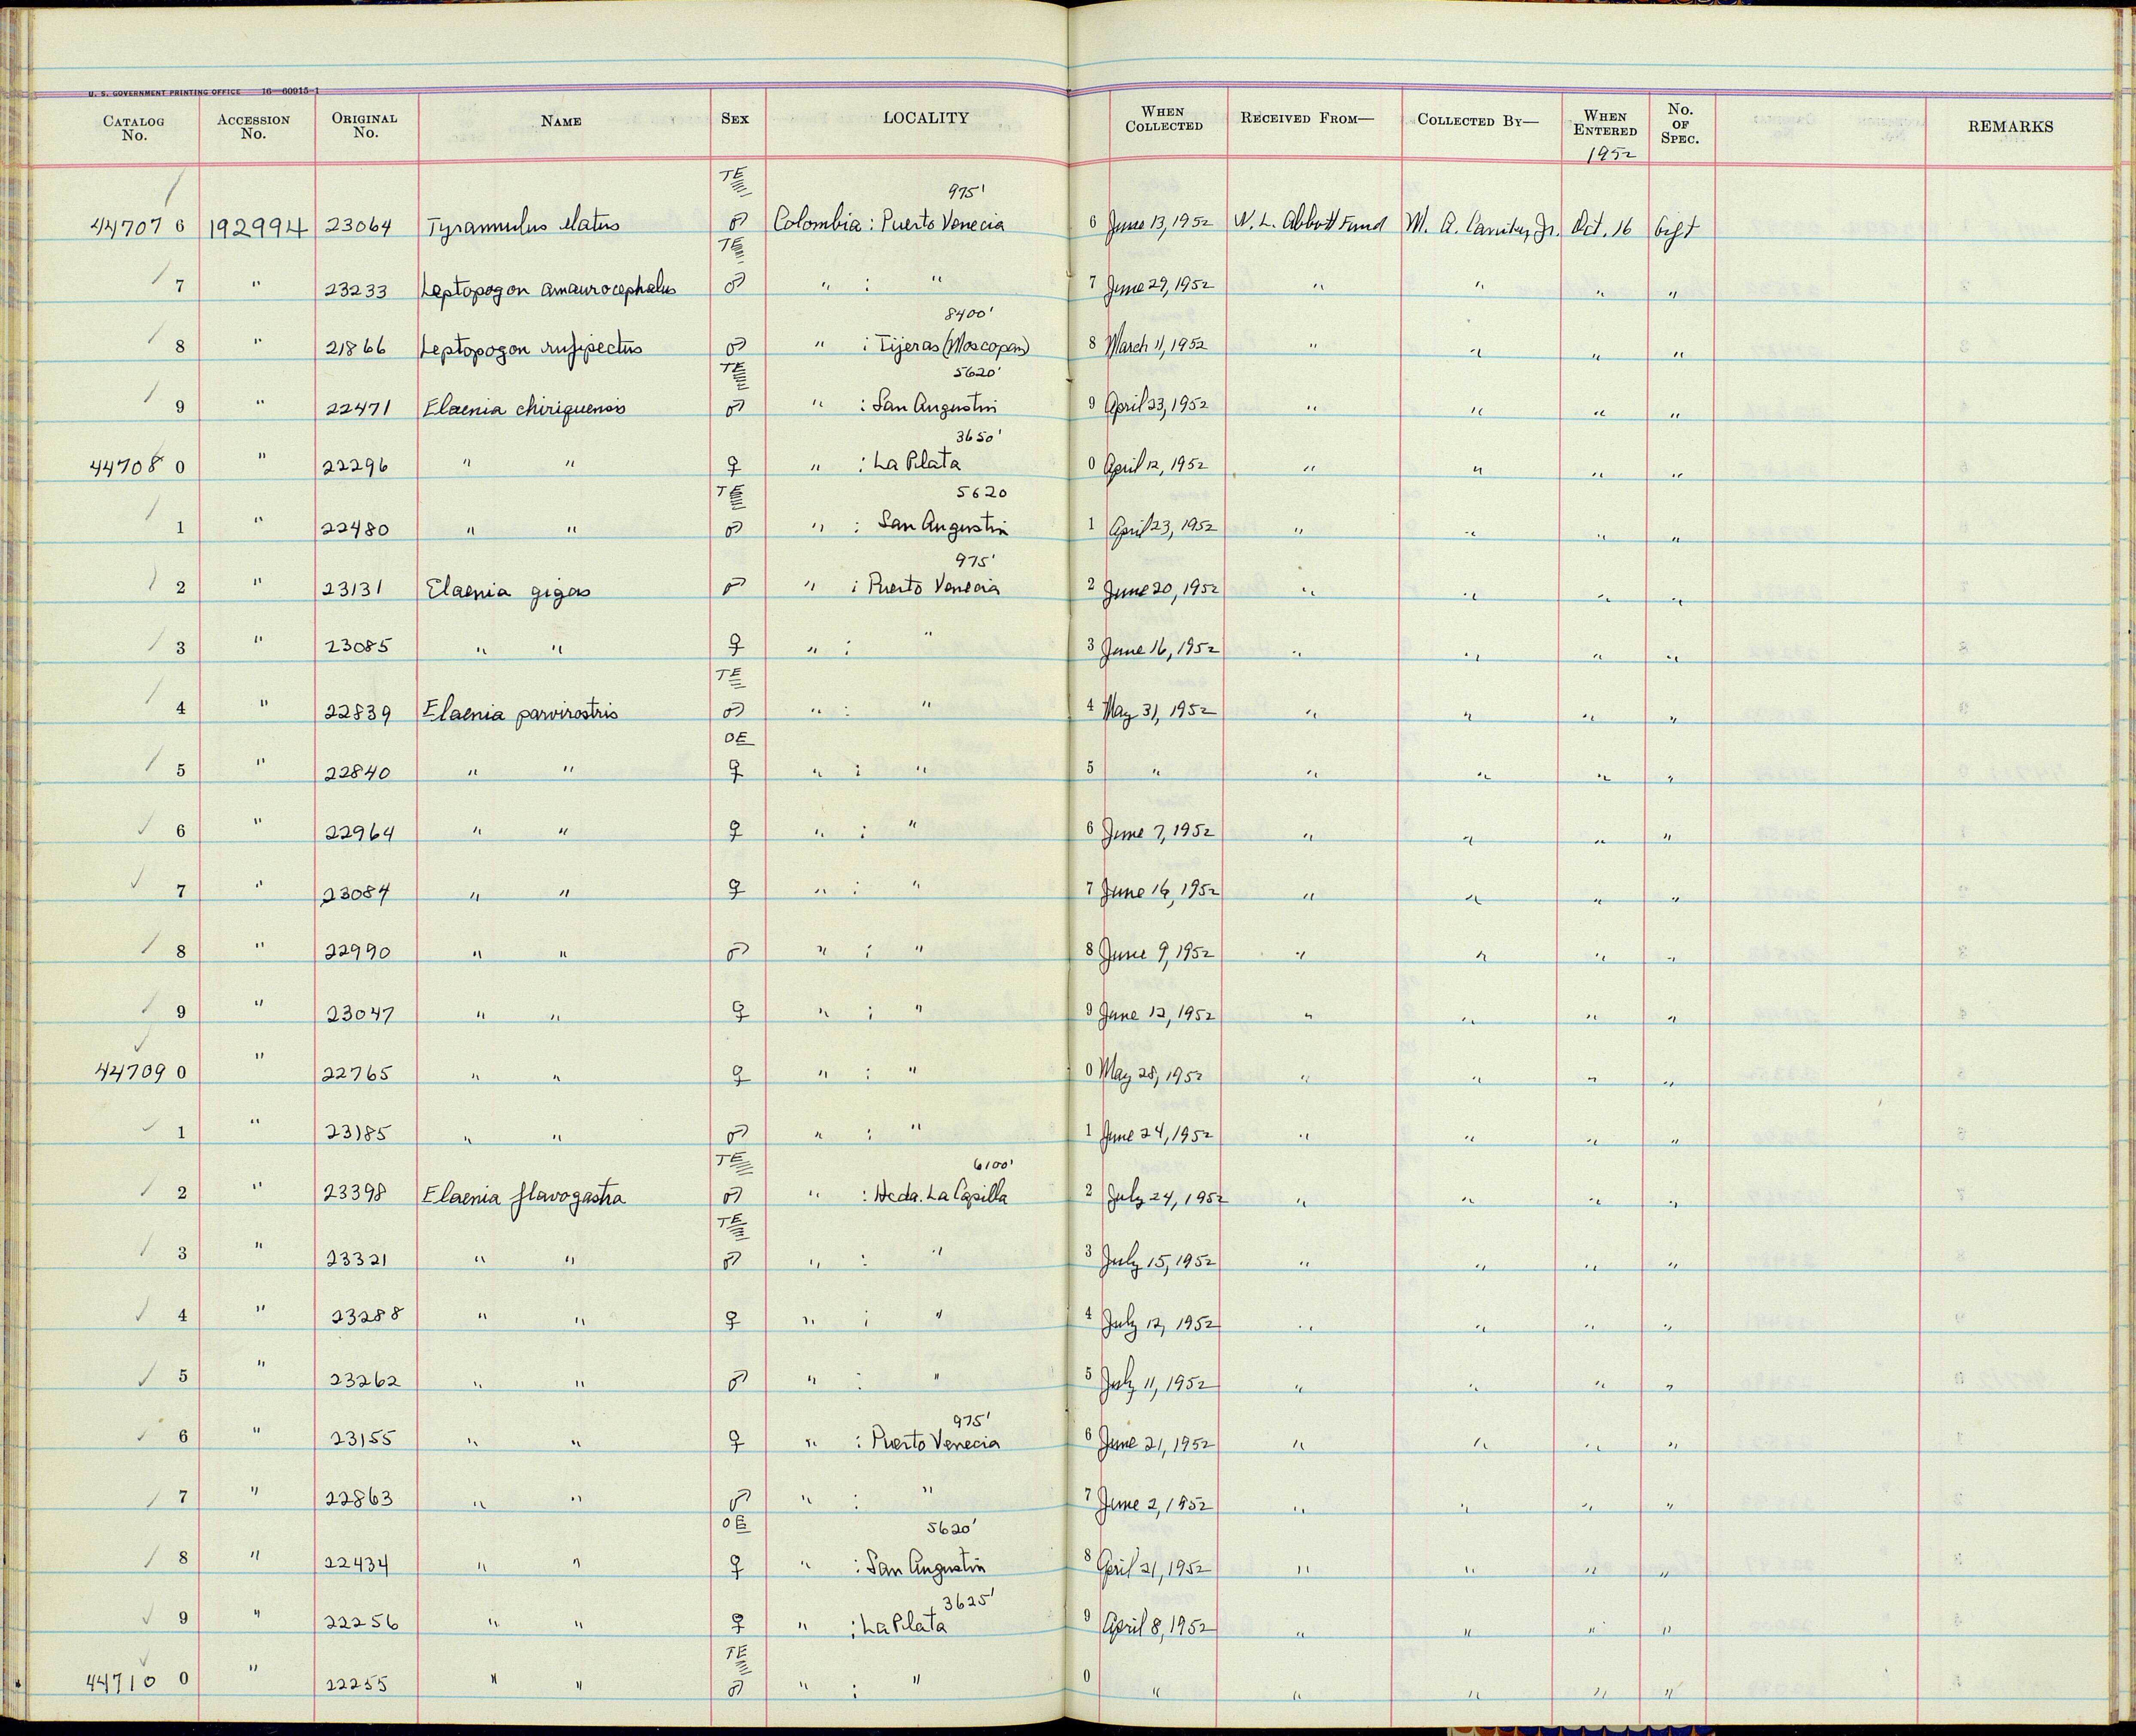 U. S. GOVERNMENT PRINTING OFFICE 16—60915-1
CATALOG No. ACCESSION No. ORIGINAL No. NAME SEX LOCALITY WHEN COLLECTED RECEIVED FROM— COLLECTED BY— WHEN ENTERED No. OF SPEC. REMARKS
1952
TE 975'
44707 6 192994 23064 Tyrannulus elatus ♂ Colombia : Puerto Venecia 6 June 13, 1952 W. L. Abbott Fund M. A. Carriker, Jr. Oct. 16 Gift
TE
7 " 23233 Leptopogon amaurocephalus ♂ " : " 7 June 29, 1952 " " " "
8400'
8 " 21866 Leptopogon rufipectus ♂ " : Tijeras (Moscopan) 8 March 11, 1952 " " " "
TE 5620'
9 " 22471 Elaenia chiriquensis ♂ " : San Angustin 9 April 23, 1952 " " " "
3650'
44708 0 " 22296 " " ♀ " : La Plata 0 April 12, 1952 " " " "
TE 5620
1 " 22480 " " ♂ " : San Angustin 1 April 23, 1952 " " " "
975'
2 " 23131 Elaenia gigas ♂ " : Puerto Venecia 2 June 20, 1952 " " " "
3 " 23085 " " ♀ " : " 3 June 16, 1952 " " " "
TE
4 " 22839 Elaenia parvirostris ♂ " : " 4 May 31, 1952 " " " "
OE
5 " 22840 " " ♀ " : " 5 " " " " "
6 " 22964 " " ♀ " : " 6 June 7, 1952 " " " "
7 " 23084 " " ♀ " : " 7 June 16, 1952 " " " "
8 " 22990 " " ♂ " : " 8 June 9, 1952 " " " "
9 " 23047 " " ♀ " : " 9 June 12, 1952 " " " "
44709 0 " 22765 " " ♀ " : " 0 May 28, 1952 " " " "
1 " 23185 " " ♂ " : " 1 June 24, 1952 " " " "
TE 6100'
2 " 23398 Elaenia flavogastra ♂ " : Hcda. La Capilla 2 July 24, 1952 " " " "
TE
3 " 23321 " " ♂ " : " 3 July 15, 1952 " " " "
4 " 23288 " " ♀ " : " 4 July 12, 1952 " " " "
5 " 23262 " " ♂ " : " 5 July 11, 1952 " " " "
975'
6 " 23155 " " ♀ " : Puerto Venecia 6 June 21, 1952 " " " "
7 " 22863 " " ♂ " : " 7 June 2, 1952 " " " "
OE 5620'
8 " 22434 " " ♀ " : San Angustin 8 April 21, 1952 " " " "
3625'
9 " 22256 " " ♀ " : La Plata 9 April 8, 1952 " " " "
TE
44710 0 " 22255 " " ♂ " : " 0 " " " " "